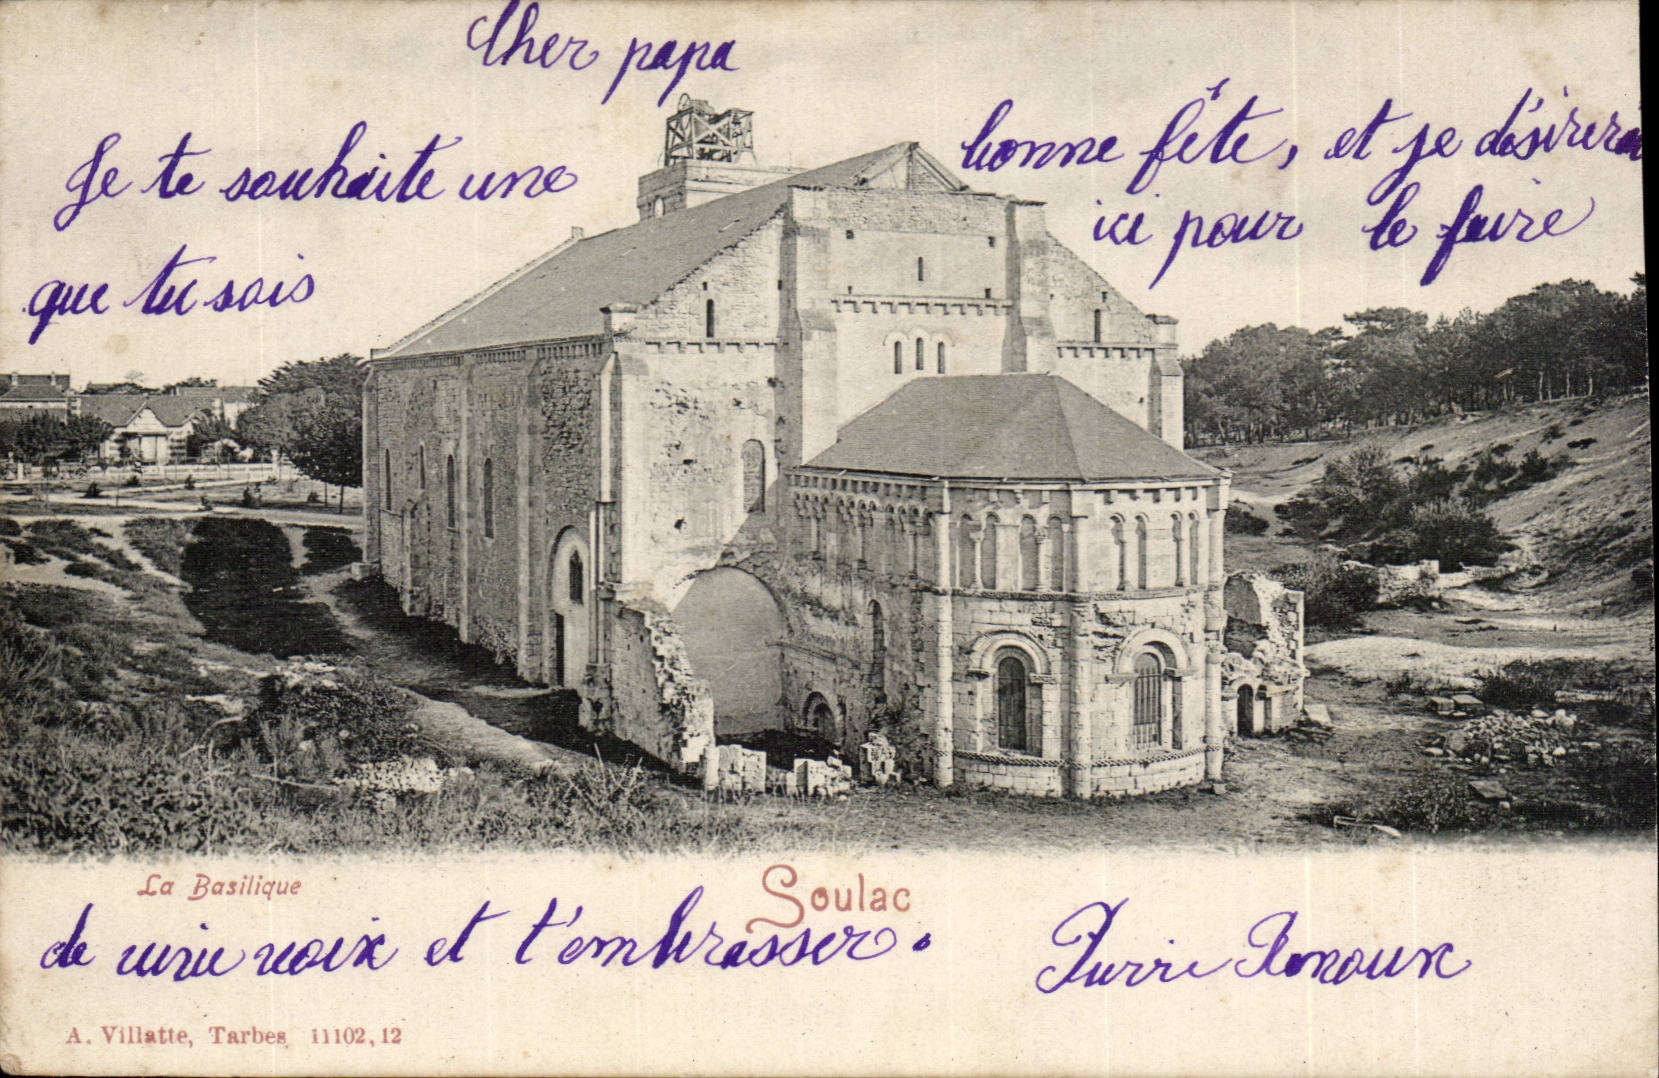 Cher papa
Je te souhaite une bonne fête, et je désirerai
que tu sois ici pour le faire
La Basilique
Soulac
de vive voix et t'embrasser.
Pierre Renoux
A. Villatte, Tarbes 11102,12